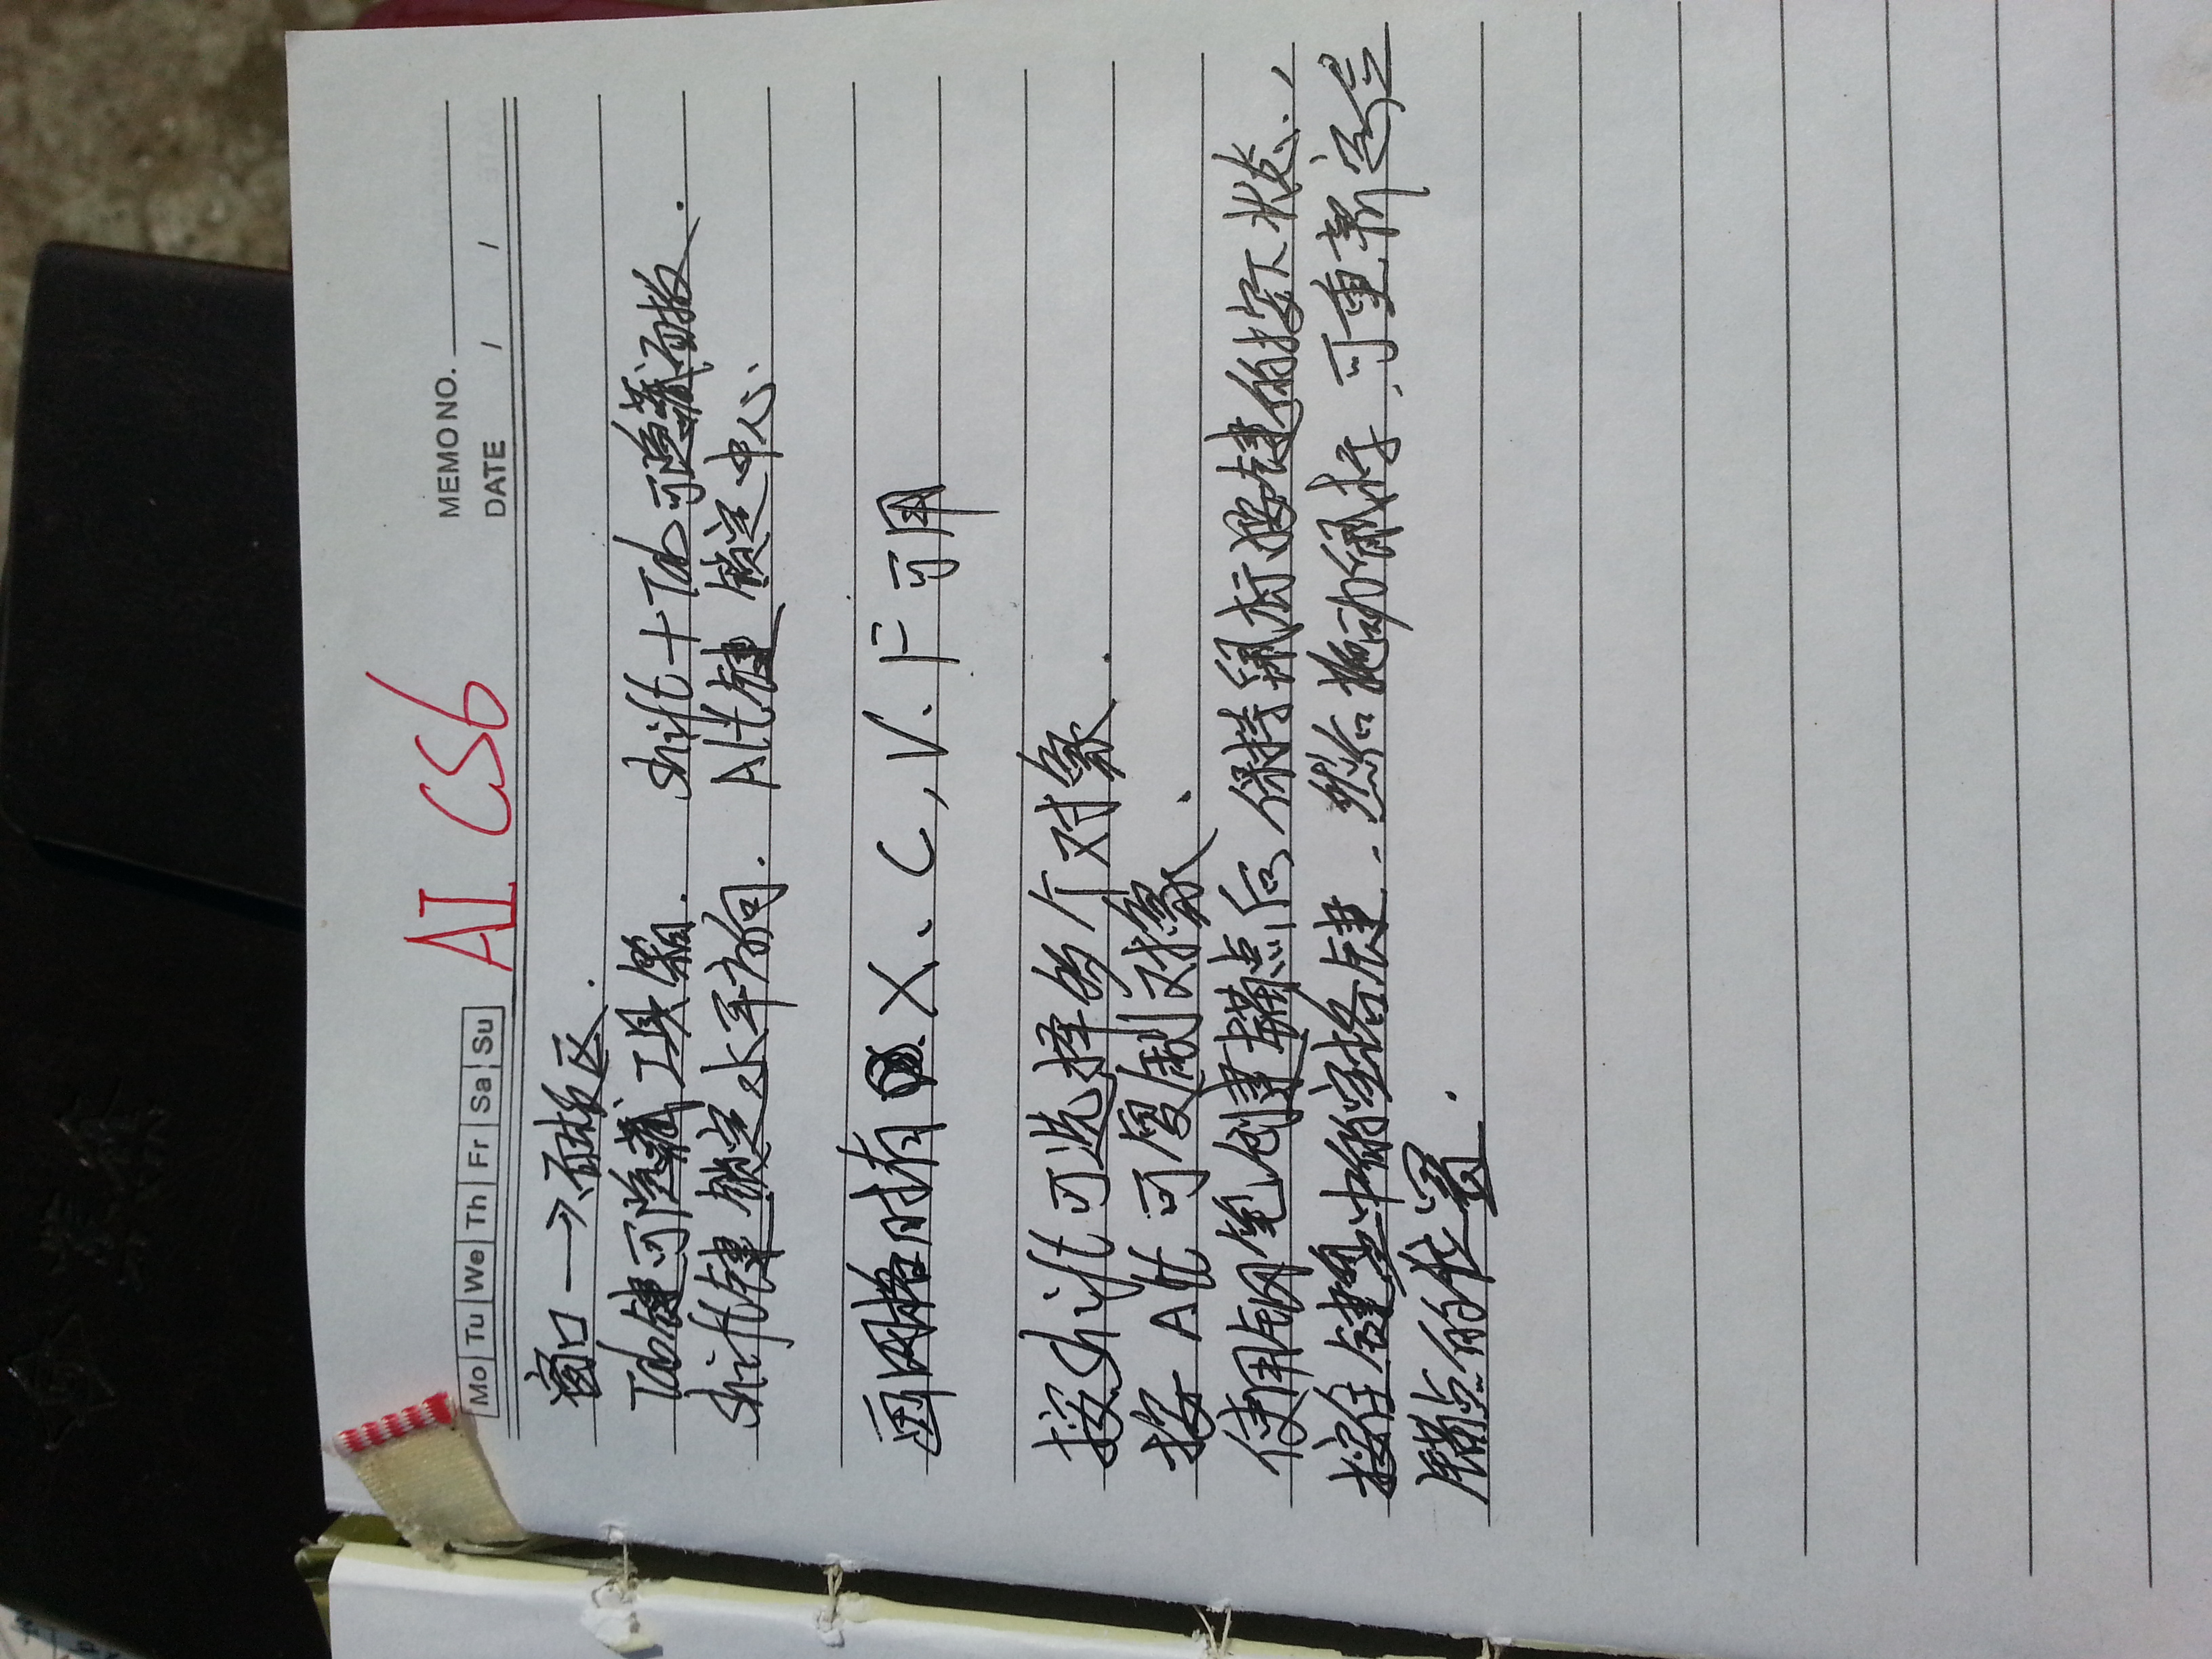 AI CS6
Mo Tu We Th Fr Sa Su
MEMO NO.
DATE / /
窗口→面板区.
Tab键可隐藏工具箱. shift+Tab可隐藏面板.
shift键锁定水平方向. Alt键锁定中心、
画网格时有 X、C,V、F可用
按shift可选择多个对象.
按Alt可复制对象.
使用钢笔创建锚点后,保持鼠标按键的按下状态,
按住键盘中的空格键.然后拖动鼠标,可重新定位
锚点的位置.